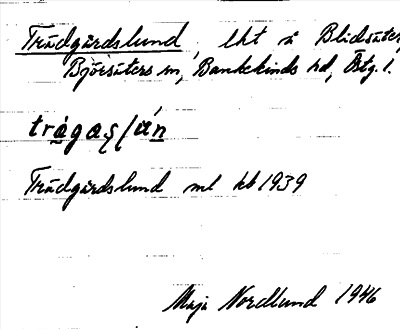 Trädgårdslund, lht å Blidsäter,
Björsäters sn, Bankekinds hd, Östg. l.
Trädgårdslund ml kb 1939
Maja Nordlund 1946